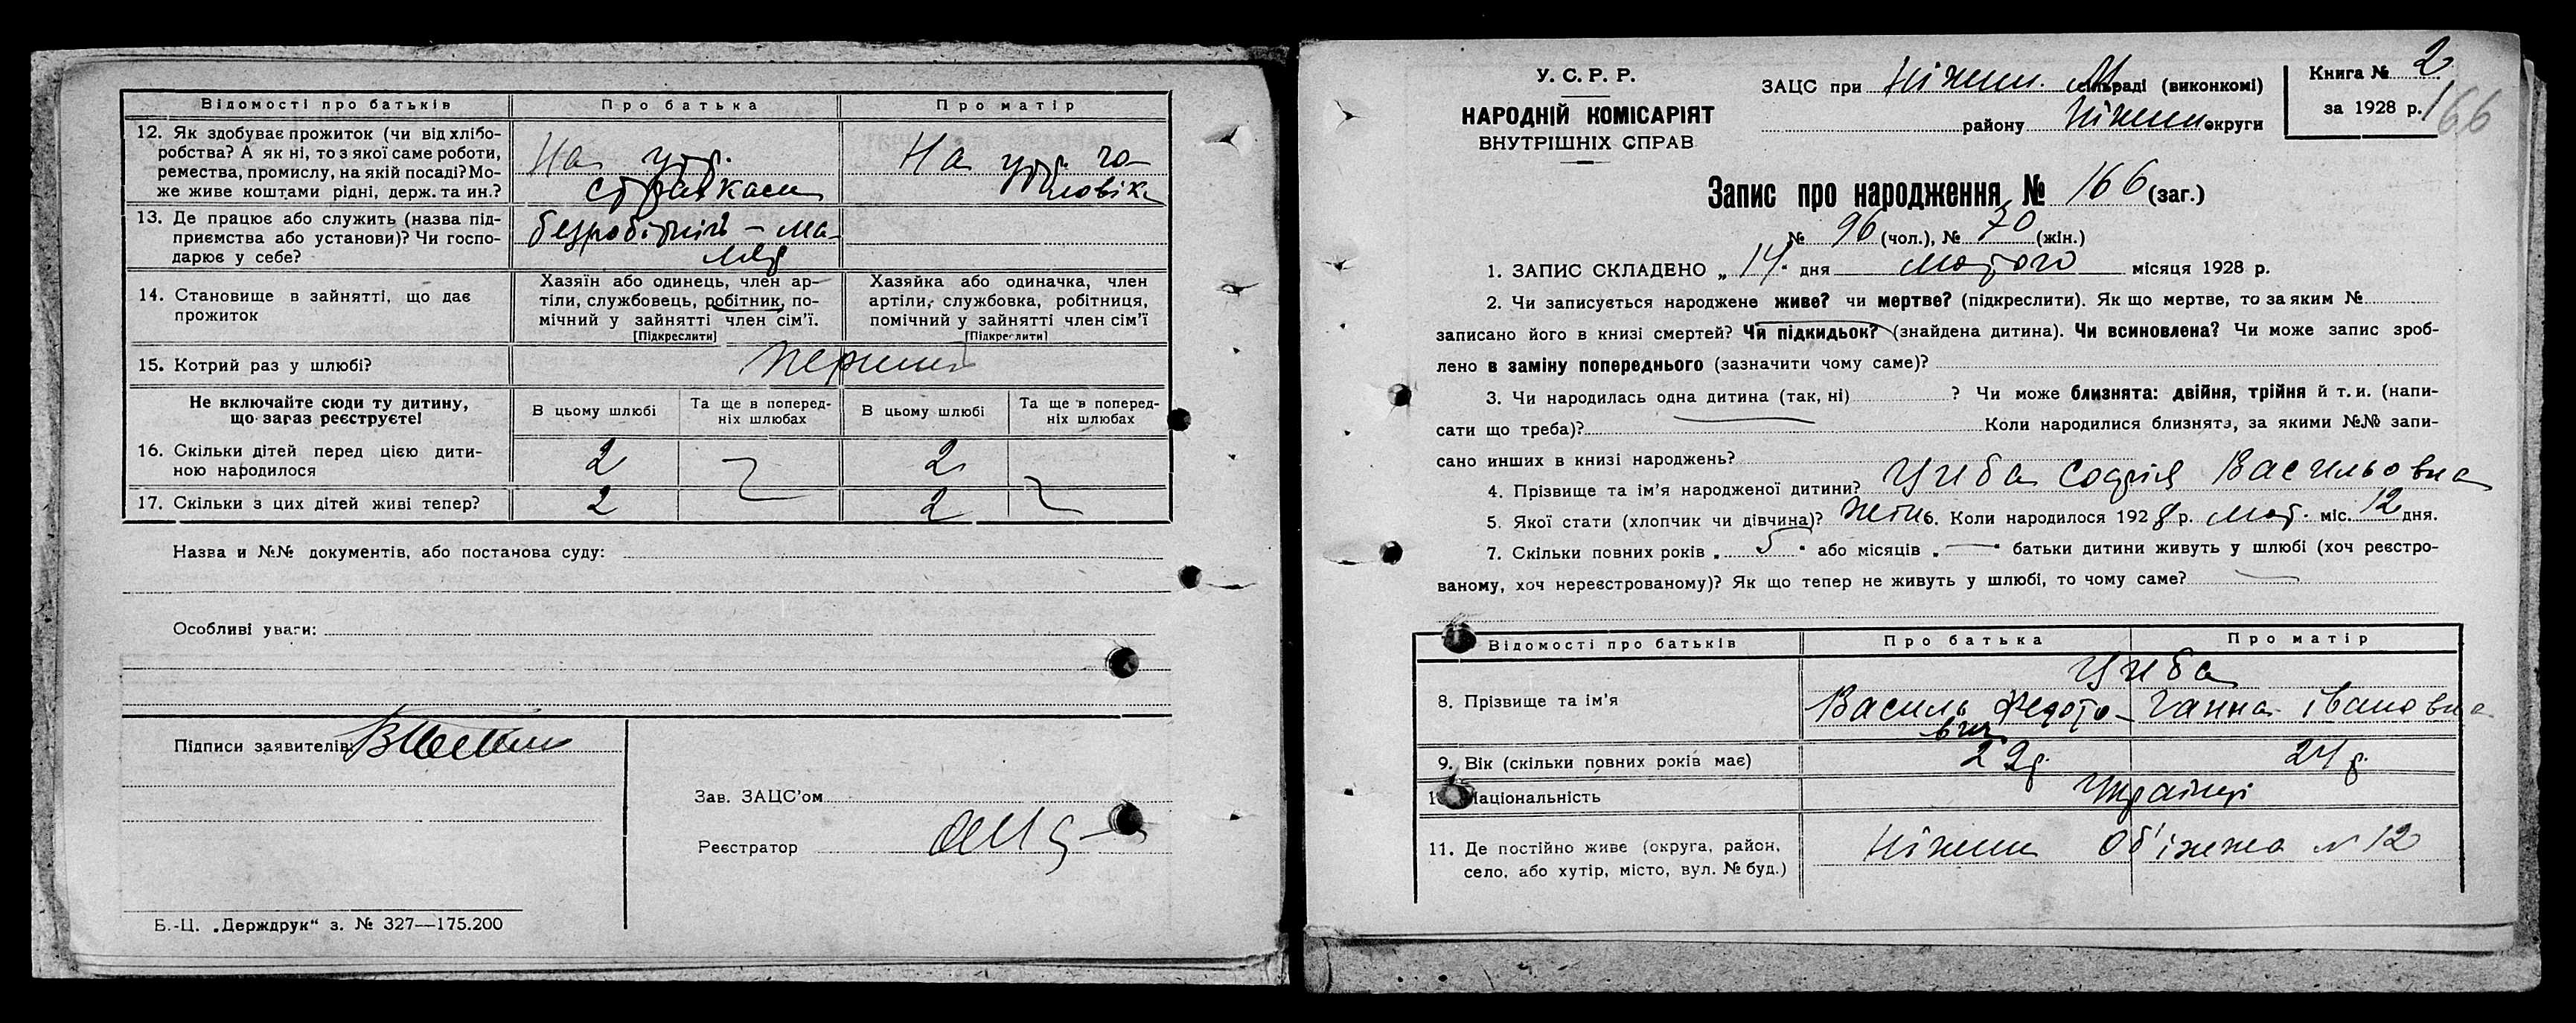 Відомості про батьків
Про батька
Про матір
12. Як здобуває прожиток (чи від хлібо-
робства? А як ні, то з якої саме роботи,
ремества, промислу, на якій посаді? Мо-
же живе коштами рідні, держ. та ин.?
На утр.
страхкаси
На утр. чо-
ловіка
13. Де працює або служить (назва під-
приємства або установи)? Чи госпо-
дарює у себе?
безробітній – ма-
ляр
14. Становище в зайнятті, що дає
прожиток
Хазяїн або одинець, член ар-
тіли, службовець, робітник, по-
мічний у зайнятті член сім'ї.
[Підкреслити]
Хазяйка або одиначка, член
артіли, службовка, робітниця,
помічний у зайнятті член сім'ї
[Підкреслити]
15. Котрий раз у шлюбі?
перший
Не включайте сюди ту дитину,
що зараз реєструєте!
В цьому шлюбі
Та ще в поперед-
ніх шлюбах
В цьому шлюбі
Та ще в поперед-
ніх шлюбах
16. Скільки дітей перед цією дити-
ною народилося
2
2
17. Скільки з цих дітей живі тепер?
2
2
Назва и №№ документів, або постанова суду:
Особливі уваги:
Підписи заявителів:
Зав. ЗАЦС'ом
Реєстратор
Б.-Ц. „Держдрук“ з. № 327—175.200
У. С. Р. Р.
НАРОДНІЙ КОМІСАРІЯТ
ВНУТРІШНІХ СПРАВ
ЗАЦС при Ніжин. М раді (виконкомі)
району Ніжин округи
Книга № 2
за 1928 р.
166
Запис про народження № 166 (заг.)
№ 96 (чол.), № 70 (жін.)
1. ЗАПИС СКЛАДЕНО „14“ дня лютого місяця 1928 р.
2. Чи записується народжене живе? чи мертве? (підкреслити). Як що мертве, то за яким №
записано його в книзі смертей? Чи підкидьок? (знайдена дитина). Чи всиновлена? Чи може запис зроб-
лено в заміну попереднього (зазначити чому саме)?
3. Чи народилась одна дитина (так, ні) ? Чи може близнята: двійня, трійня й т. и. (напи-
сати що треба)? Коли народилися близнята, за якими №№ запи-
сано инших в книзі народжень?
4. Прізвище та ім'я народженої дитини? Циба Софія Васильовна
5. Якої стати (хлопчик чи дівчина)? жін 6. Коли народилося 1928 р. лют. міс. 12 дня.
7. Скільки повних років „ 5 “ або місяців „ — “ батьки дитини живуть у шлюбі (хоч реєстро-
ваному, хоч нереєстрованому)? Як що тепер не живуть у шлюбі, то чому саме?
Відомості про батьків
Про батька
Про матір
8. Прізвище та ім'я
Циба
Василь Федото-
вич
Ганна Івановна
9. Вік (скільки повних років має)
29 р.
24 р.
10. Національність
Українці
11. Де постійно живе (округа, район,
село, або хутір, місто, вул. № буд.)
Ніжин Об'їжжа № 12